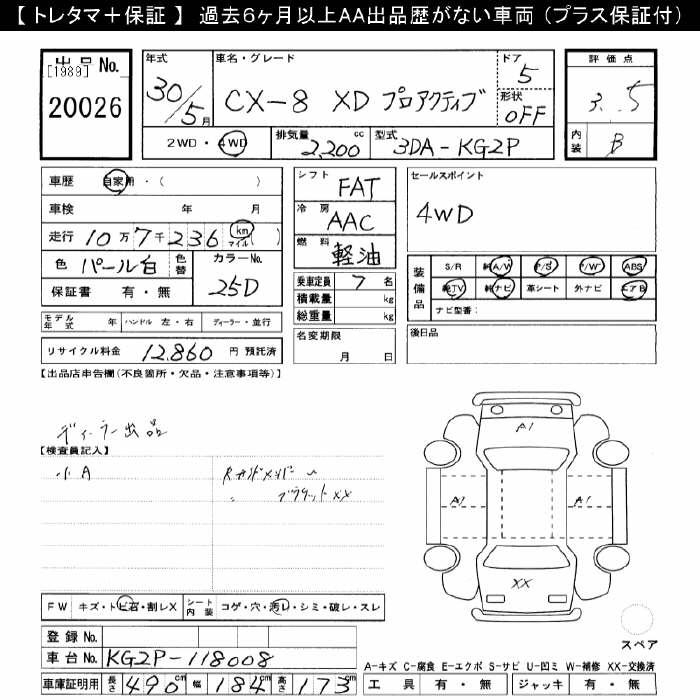 【 トレタマ＋保証 】 過去6ヶ月以上AA出品歴がない車両（プラス保証付）
出品 No.
[1989]
20026
年式
30/5月
車名・グレード
CX-8 XD プロアクティブ
ドア
5
形状
OFF
2WD・4WD
排気量 2,200 cc
型式 3DA-KG2P
評価点
3.5
内装 B
車歴 自家用・( )
車検 年 月
走行 10万7千236 km マイル ( )
色 パール白 色替
カラーNo. 25D
保証書 有・無
モデル年式 年 ハンドル 左・右 ディーラー・並行
リサイクル料金 12,860 円 預託済
シフト FAT
冷房 AAC
燃料 軽油
乗車定員 7 名
積載量 kg
総重量 kg
名変期限
月 日
セールスポイント
4WD
装備品
S/R 純A/W P/S P/W ABS
純TV 純ナビ 革シート 外ナビ エアB
ナビ型番:
後日品
【出品店申告欄(不良箇所・欠品・注意事項等)】
ディーラー出品
【検査員記入】
小A
Rカンドメンバー〜
〃 ブラケットXX
A1
A1
A1
XX
スペア
FW キズ・トビ石・割レX シート内装 コゲ・穴・汚レ・シミ・破レ・スレ
登録 No.
車台 No. KG2P-118008
車庫証明用 長さ 490 cm 幅 184 cm 高さ 173 cm
A-キズ C-腐食 E-エクボ S-サビ U-凹ミ W-補修 XX-交換済
工具 有・無 ジャッキ 有・無